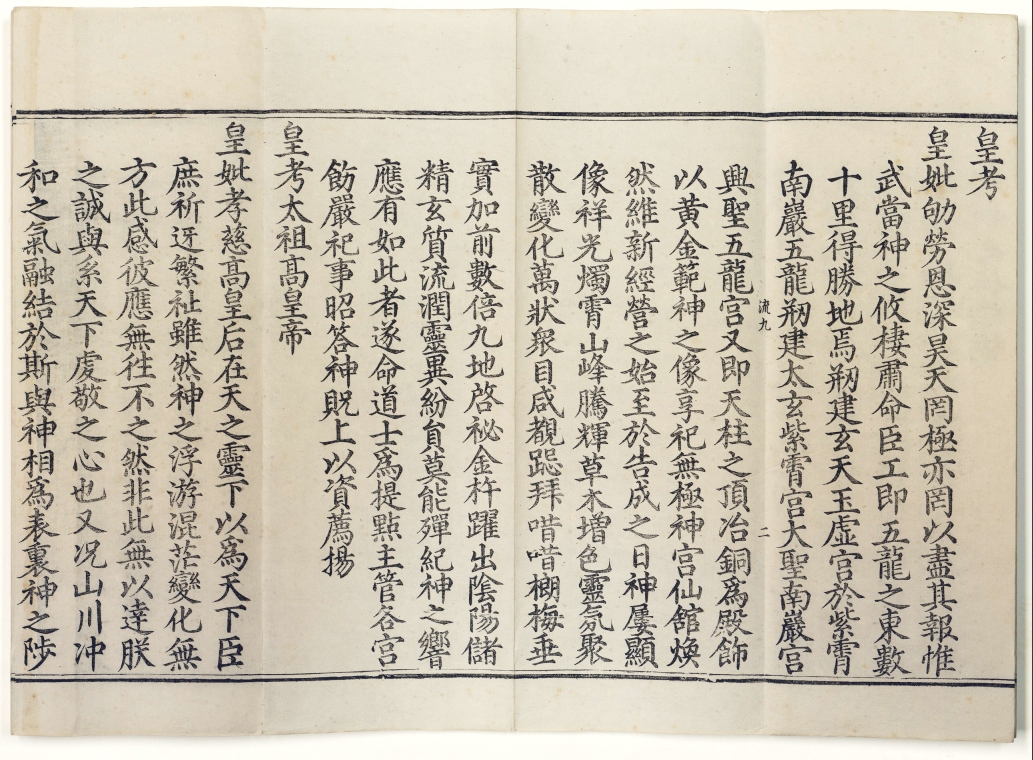 皇考
皇妣劬勞恩深昊天罔極亦罔以盡其報惟
武當神之攸棲肅命臣工即五龍之東數
十里得勝地焉剏建玄天玉虛宮於紫霄
南巖五龍剏建太玄紫霄宮大聖南巖宮
流九
二
興聖五龍宮又即天柱之頂冶銅爲殿飾
以黃金範神之像享祀無極神宮仙館煥
然維新經營之始至於告成之日神屢顯
像祥光燭霄山峰騰輝草木增色靈氛聚
散變化萬狀衆目咸覩跽拜唶唶榔梅垂
實加前數倍九地啓祕金杵躍出陰陽儲
精玄質流潤靈異紛貟莫能殫紀神之響
應有如此者遂命道士爲提點主管各宮
飭嚴祀事昭答神貺上以資薦揚
皇考太祖髙皇帝
皇妣孝慈髙皇后在天之靈下以爲天下臣
庶祈迓繁祉雖然神之浮游混茫變化無
方此感彼應無徃不之然非此無以達朕
之誠與系天下虔敬之心也又况山川冲
和之氣融結於斯與神相爲表裏神之陟